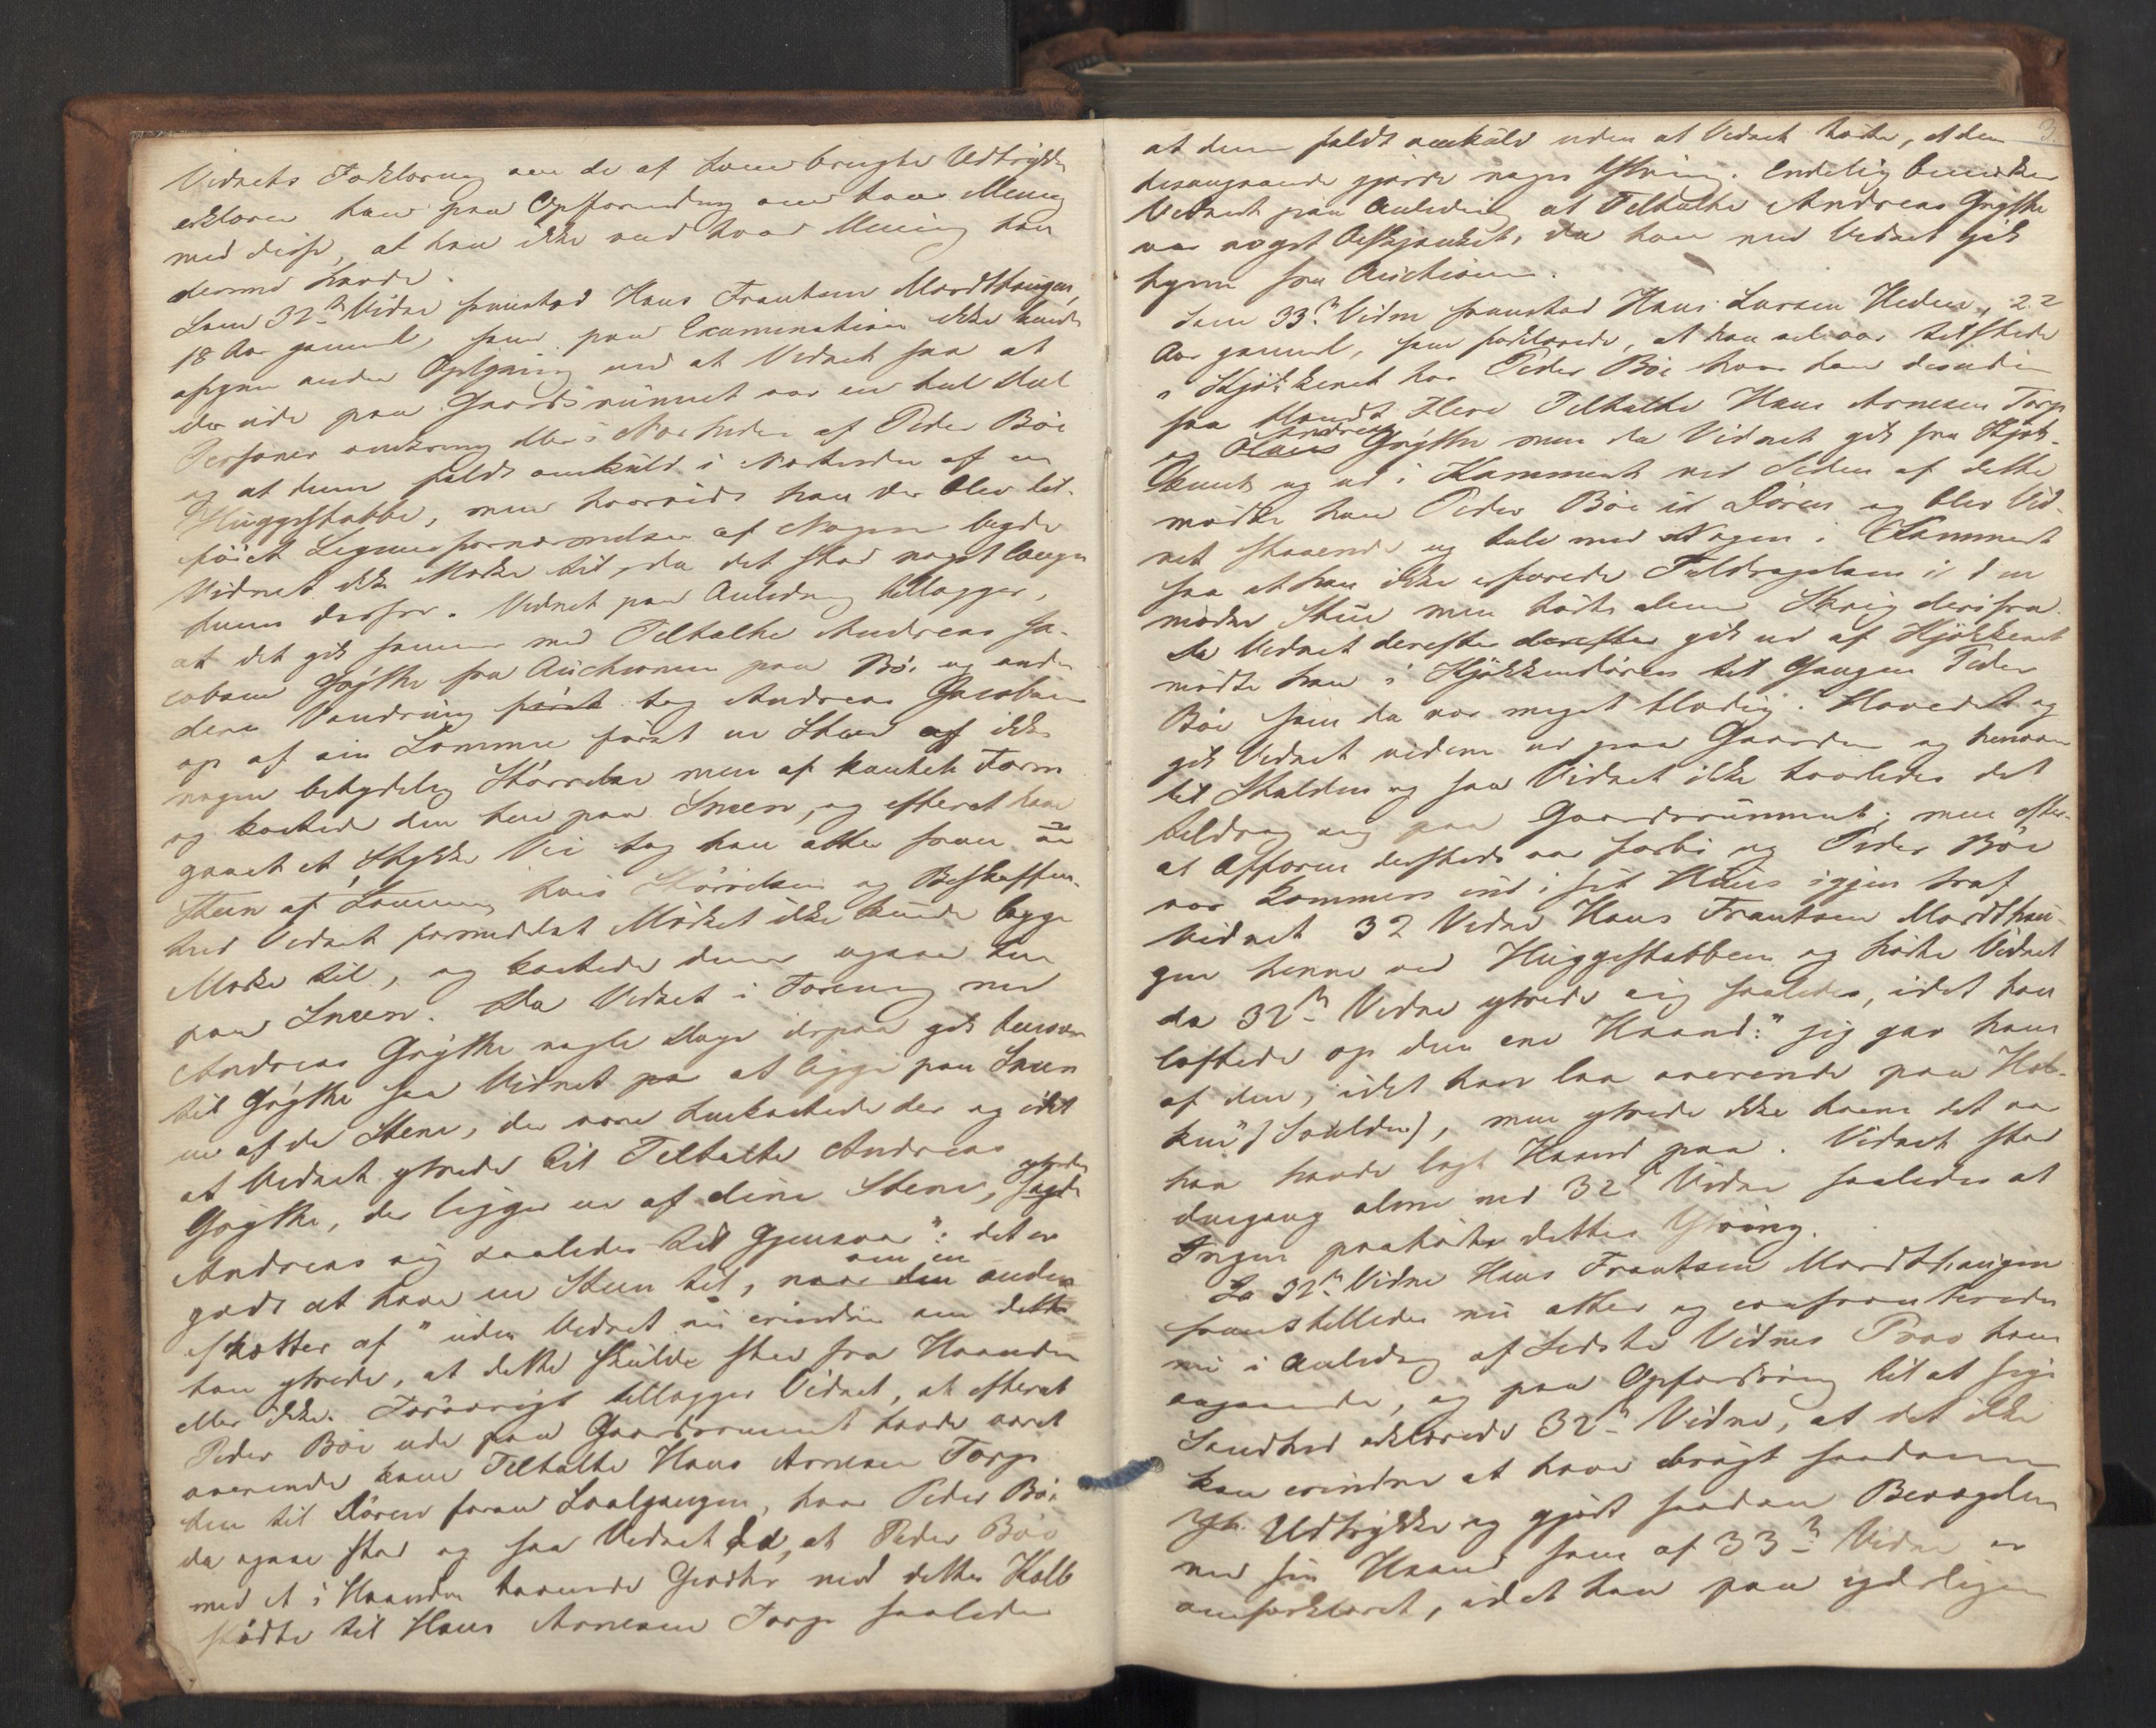 Vidnets Forklaring om de af ham brugte Udtrykke
erklærer han paa Opfordring om hans Mening
med disse, at han ikke ved hvad Mening han
dermed havde.
Som 32te Vidne fremstod Hans Frantsen Mordthaugen,
18 Aar gammel, som paa Examination ikke kunde
afgive anden Oplysning end at Vidnet saa at
der ude paa Gaardsrummet var en hel Deel
Personer omkring eller i Nærheden af Peder Böe
og at denne faldt omkuld i Nærheden af en
Huggestabbe, men hvorvidt han der blev til-
föiet Legemsfornærmelser af Nogen lagde
Vidnet ikke Mærke til, da det stod noget længer
henne derfra. Vidnet paa Anledning tillægger,
at det gik sammen med Tiltalte Andreas Ja-
cobsen Gröthe fra Auctionen paa Böe og under
deres Vandring först tog Andreas Jacobsen
op af sin Lomme först en Steen af ikke
nogen betydelig Störrelse men af kantet Form
og kastede den hen paa Sneen, og efterat have
gaaet et Stykke Vei tog han atter frem en
Steen af Lommen, hvis Störrelse og Beskaffen-
hed Vidnet formedelst Mörket ikke kunde lægge
Mærke til, og kastede denne ogsaa hen
paa Sneen. Da Vidnet i Forening med
Andreas Gröthe nogle Dage derpaa gik henover
til Gröthe saa Vidnet paa at ligge paa Sneen
en af de Stene, der vare henkastede der og idet
at Vidnet ytrede til Tiltalte Andreas
Gröthe, der ligger en af dine Stene, ytrede sagde
Andreas sig saaledes til Gjensvar": det er
godt at have en Steen til, naar om en den anden
skvetter af" uden Vidnet nu erindrer om dette
han ytrede, at dette skulde skee fra Haanden
eller ikke. Forövrigt tillægger Vidnet, at efterat
Peder Böe ude paa Gaardsrummet havde været
overende kom Tiltalte Hans Arnesen Torp
hen til Dören foran Svalgangen, hvor Peder Böe
da ogsaa stod og saa Vidnet da, at Peder Böe
med et i Haanden havende Gevær med dettes Kolb
stödte til Hans Arnesen Torp saaledes
3
at denne faldt omkuld uden at Vidnet hörte, at den
desangaaende gjorde nogen Ytring. Endelig bemærker
Vidnet paa Anledning at Tiltalte Andreas Gröthe
var noget beskjænket, da han med Vidnet gik
hjem fra Auctionen.
Som 33te Vidne fremstod Hans Larsen Heden, 22
Aar gammel, som forklarede, at han var tilstede
i Kjökkenet hos Peder Böe hvor han desuden
saa blandt Flere Tiltalte Hans Arnesen Torp
og Hans Andreas Gröthe men da Vidnet gik fra Kjök-
kenet og ud i Kammeret ved Siden af dette
mödte han Peder Böe i Dören og blev Vid-
net staaende og tale med Nogen i Kammeret
saa at han ikke erfarede Tildragelsen i den
nedre Stue men hörte alene Skrig derifra.
Da Vidnet derefter derefter gik ud af Kjökkenet
mödte han i Kjökkendören til Gangen Peder
Böe som da var meget blodig i Hovedet og
gik Vidnet videre ud paa Gaarden og henover
til Stalden og saa Vidnet ikke hvorledes det
tildrog sig paa Gaardsrummet; men efter
at Affæren dersteds var forbi og Peder Böe
var kommen ind i sit Huus igjen traf
Vidnet 32 Vidne Hans Frantsen Mordthau-
gen henne ved Huggestabben og hörte Vidnet
da 32te Vidne ytrede sig saaledes, idet han
löftede op den ene Haand: "jeg gav ham
af den, idet han laa overende paa Hal-
ken" (Svulden), men ytrede ikke hvem det var
han havde lagt Haand paa. Vidnet stod
dengang alene med 32te Vidne saaledes at
Ingen paahörte dettes Ytring.
Da 32te Vidne Hans Frantsen Mordthaugen
fremstilledes nu atter og confronteredes
nu i Anledning af sidste Vidnes Prov ham
angaaende, og paa Opfordring til at sige
Sandhed erklærede 32te Vidne, at det ikke
kan erindre at have brugt saadanne
Yt. Udtrykke og gjort saadan Bevægelse
med sin Haand som af 33te Vidne er
omforklaret, idet han paa yderligere